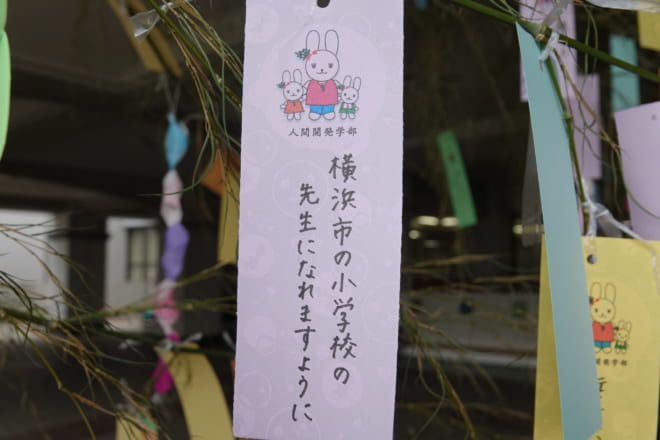 人間開発学部
横浜市の小学校の
先生になれますように
人間開発学部